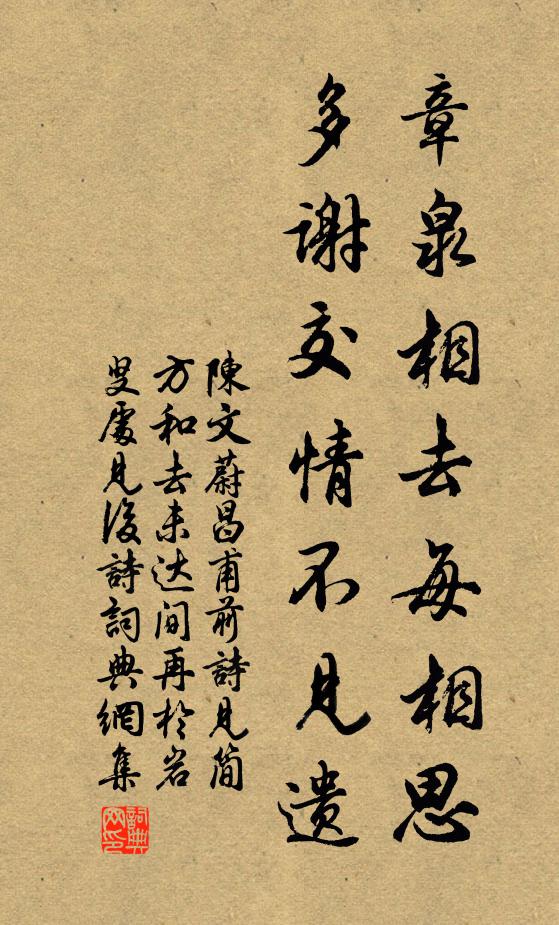 章泉相去每相思
多謝交情不見遗
陳文蔚昌甫前詩見簡
方和去未达间再於岩
叟處見後詩詞典網集
詞典网印